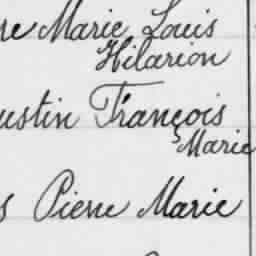 re Marie Louis
Hilarion
ustin François
Marie
s Pierre Marie